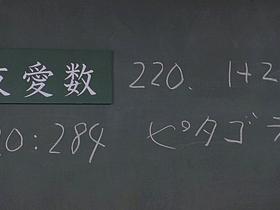 友愛数 220、1+2
20:284 ピタゴラ